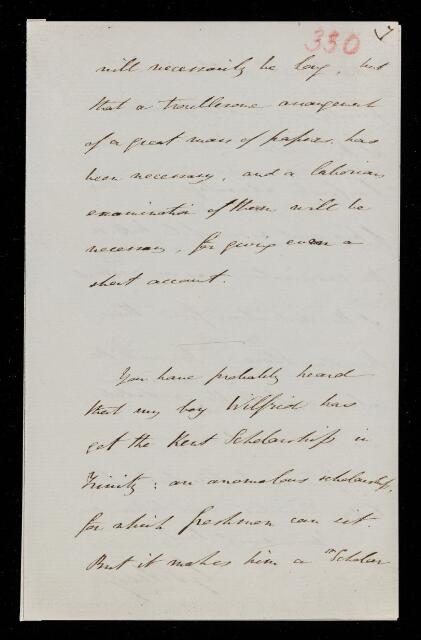 330 7
will necessarily be long, but
that a troublesome arrangement
of a great mass of papers has
been necessary, and a laborious
examination of them will be
necessary, for giving even a
short account.
You have probably heard
that my boy Wilfrid has
got the Kent Scholarship in
Trinity: an anomalous scholarship,
for which freshmen can sit.
But it makes him a "Scholar